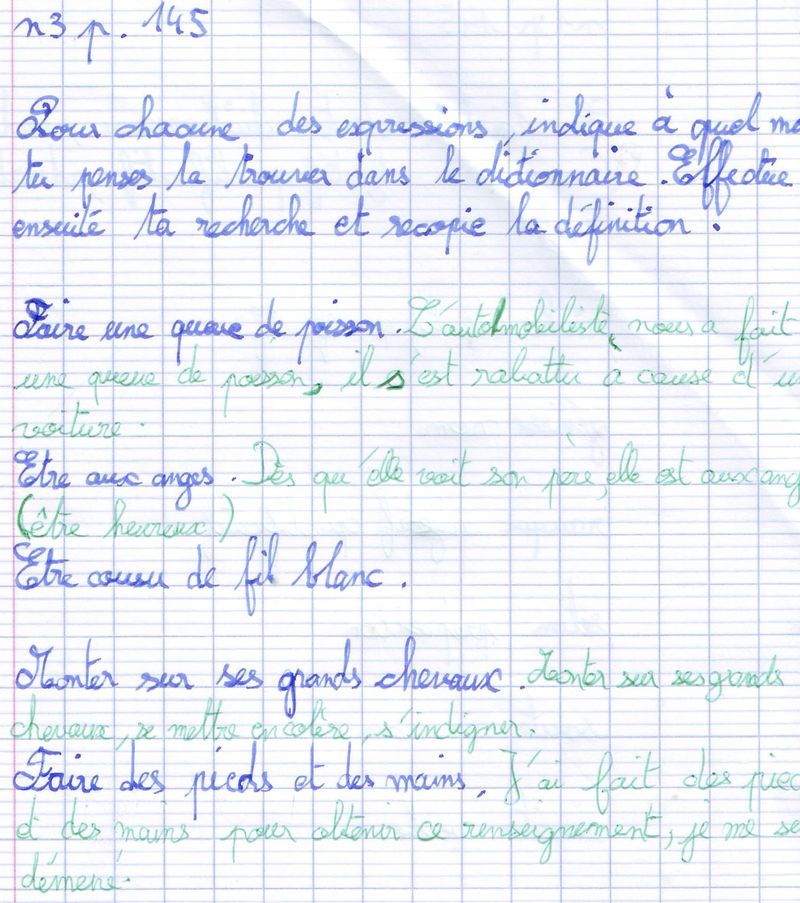 n3 p. 145
Pour chacune des expressions, indique à quel mo
tu penses la trouver dans le dictionnaire. Effectue
ensuite ta recherche et recopie la définition.
Faire une queue de poisson. L'automobiliste, nous a fait
une queue de poisson, il s'est rabattu à cause d'u
voiture.
Etre aux anges. Dès qu'elle voit son père, elle est aux ang
(être heureux)
Etre cousu de fil blanc.
Monter sur ses grands chevaux. Monter sur ses grands
chevaux, se mettre en colère, s'indigner.
Faire des pieds et des mains. J'ai fait des pied
et des mains pour obtenir ce renseignement, je me s
démené.